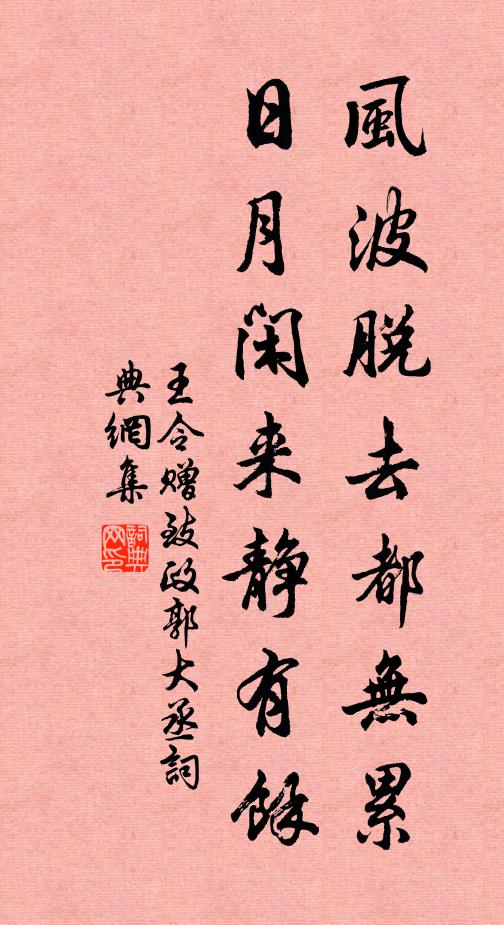 風波脱去都無累
日月閑来靜有餘
王令贈致政郭大丞詞
典網集
詞典
网印